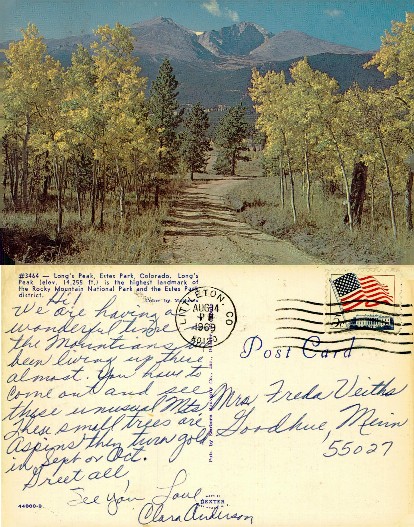 #3464 — Long's Peak, Estes Park, Colorado. Long's
Peak (elev. 14,255 ft.) is the highest landmark of
the Rocky Mountain National Park and the Estes Park
district.
Hi!
We are having a
wonderful time
the Mountains
been living up there
almost. You have to
come out and see
these unusual Mts.
These small trees are
Aspins they turn gold
in Sept or Oct.
Greet all,
See you Love
Clara Anderson
44900-B
DEXTER
LITTLETON, CO
AUG 14
PM
1969
80120
Post Card
Mrs Freda Veiths
Goodhue, Minn
55027